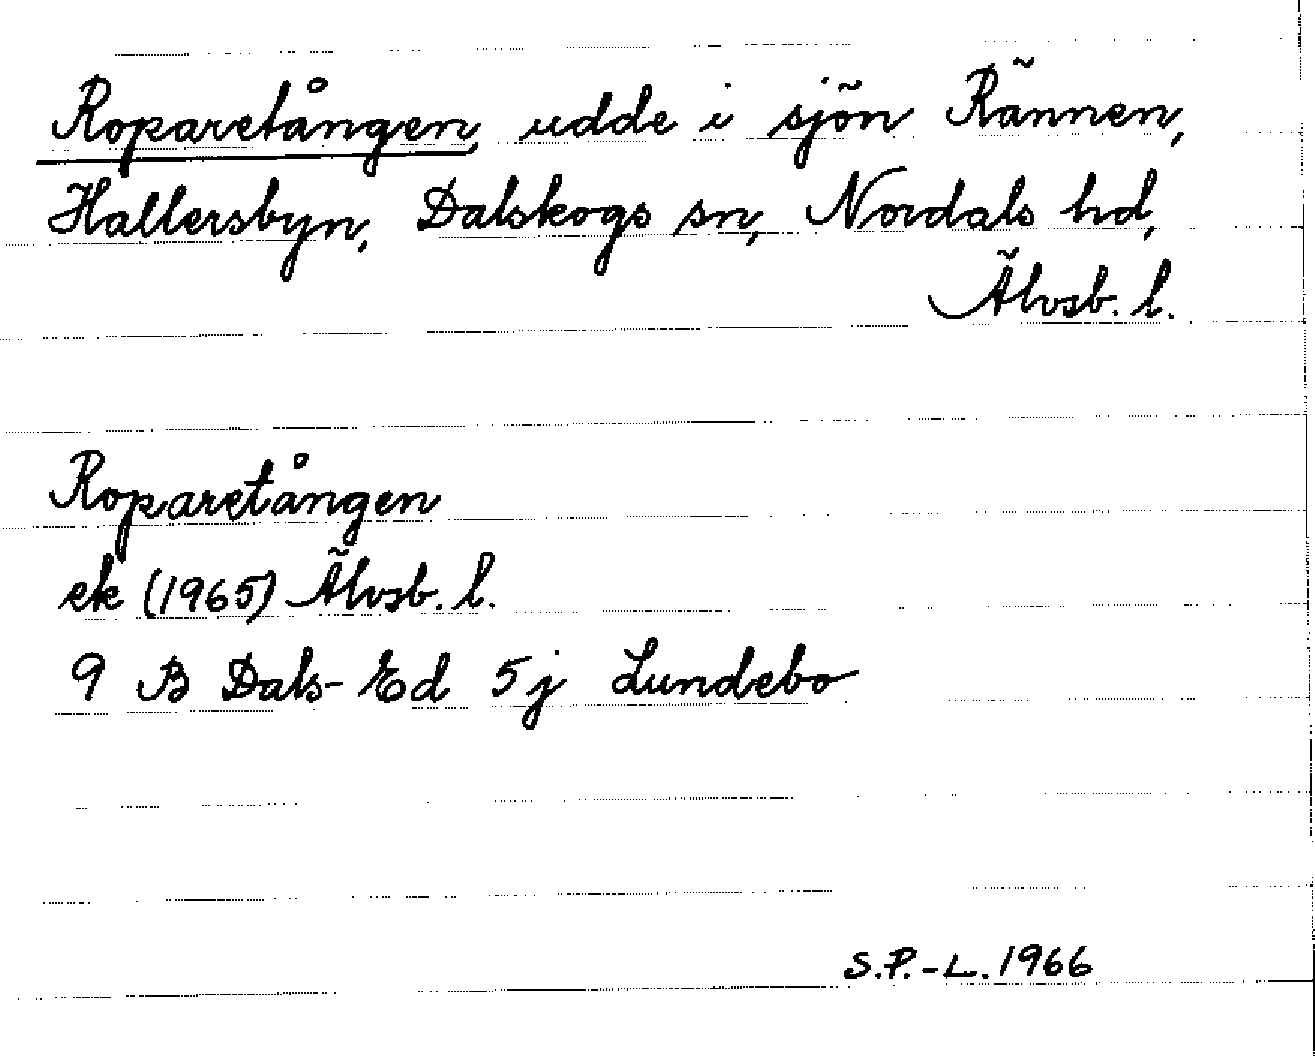 Roparetången, udde i sjön Rännen,
Hallersbyn, Dalskogs sn, Nordals hd,
Älvsb. l.
Roparetången
ek (1965) Älvsb. l.
9 B Dals-Ed 5j Lundebo
S.P.-L. 1966